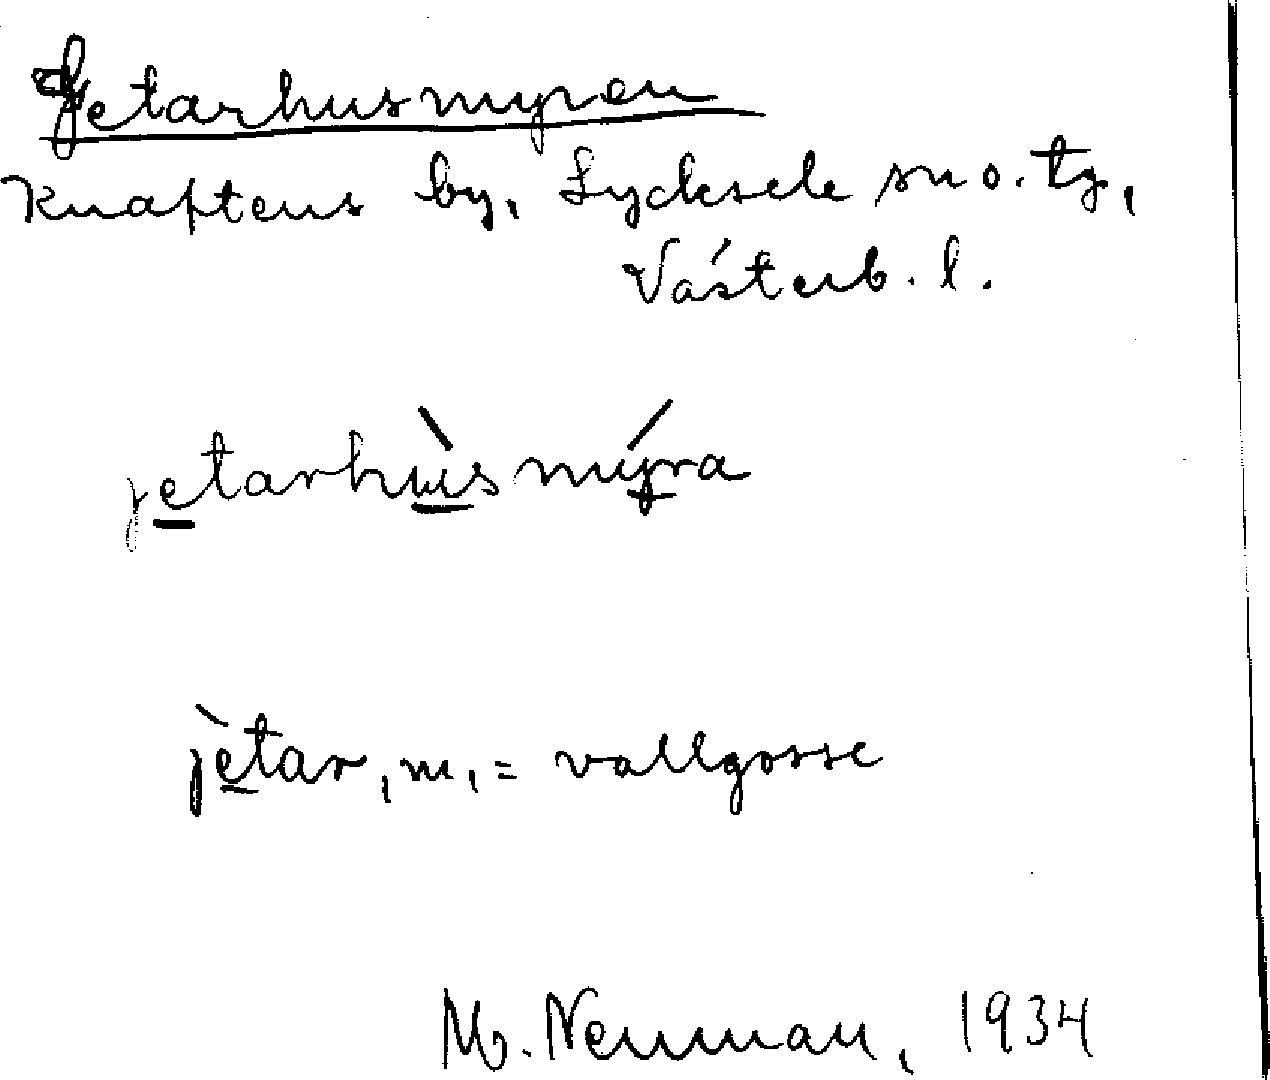 Getarhusmyren
Knaftens by, Lycksele sn o. tg,
Västerb. l.
jetarhùsmýra
jètar, m, = vallgosse
M. Neuman, 1934